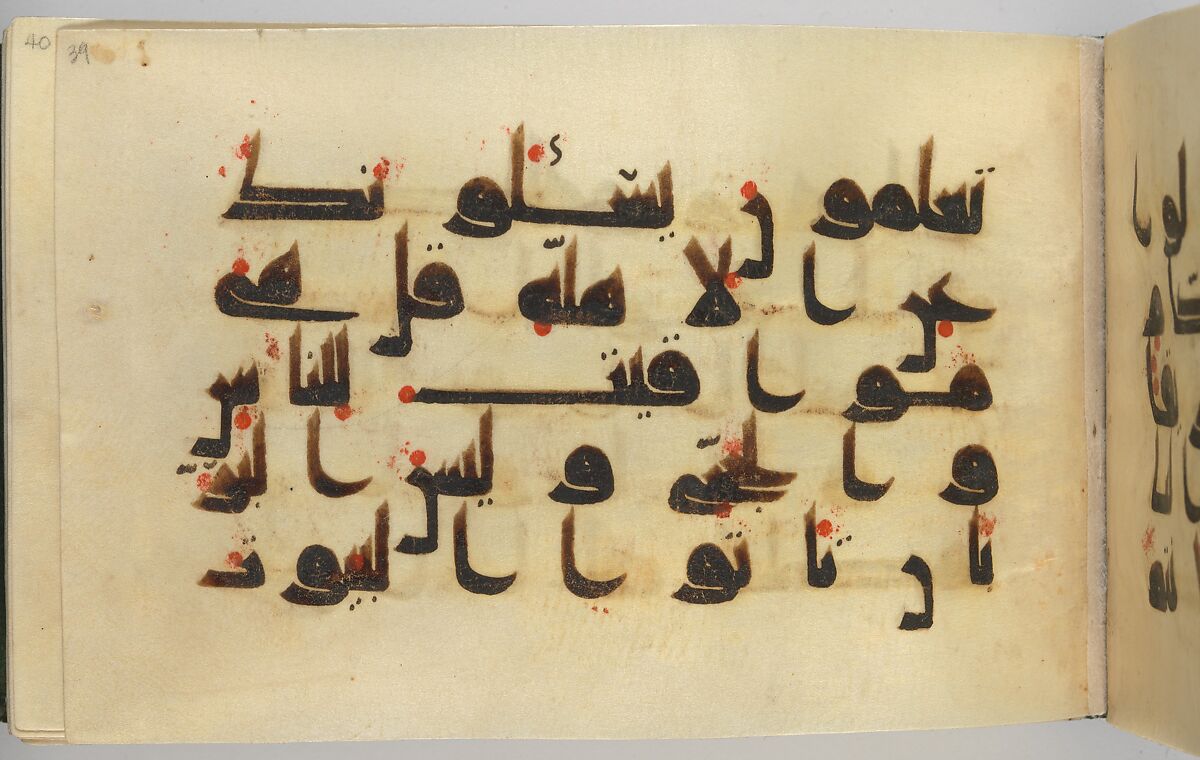 40
39
تعلمون يسئلونك
عن الاهلة قل هى
مواقيت للناس
والحج وليس البر
بان تاتوا البيوت